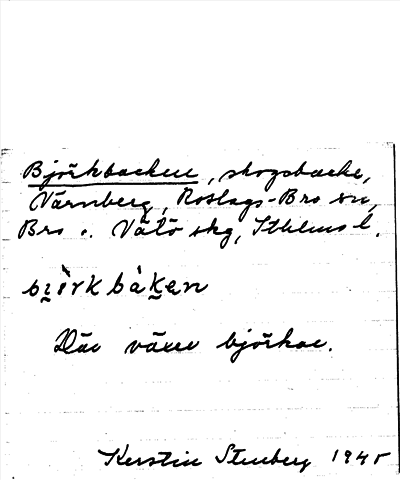 Björkbacken, skogsbacke,
Värnberg, Roslags-Bro sn,
Bro o. Vätö skg, Sthlms l.
bi̯ö̀rkbàkən
Där växer björkar.
Kerstin Stenberg 1945